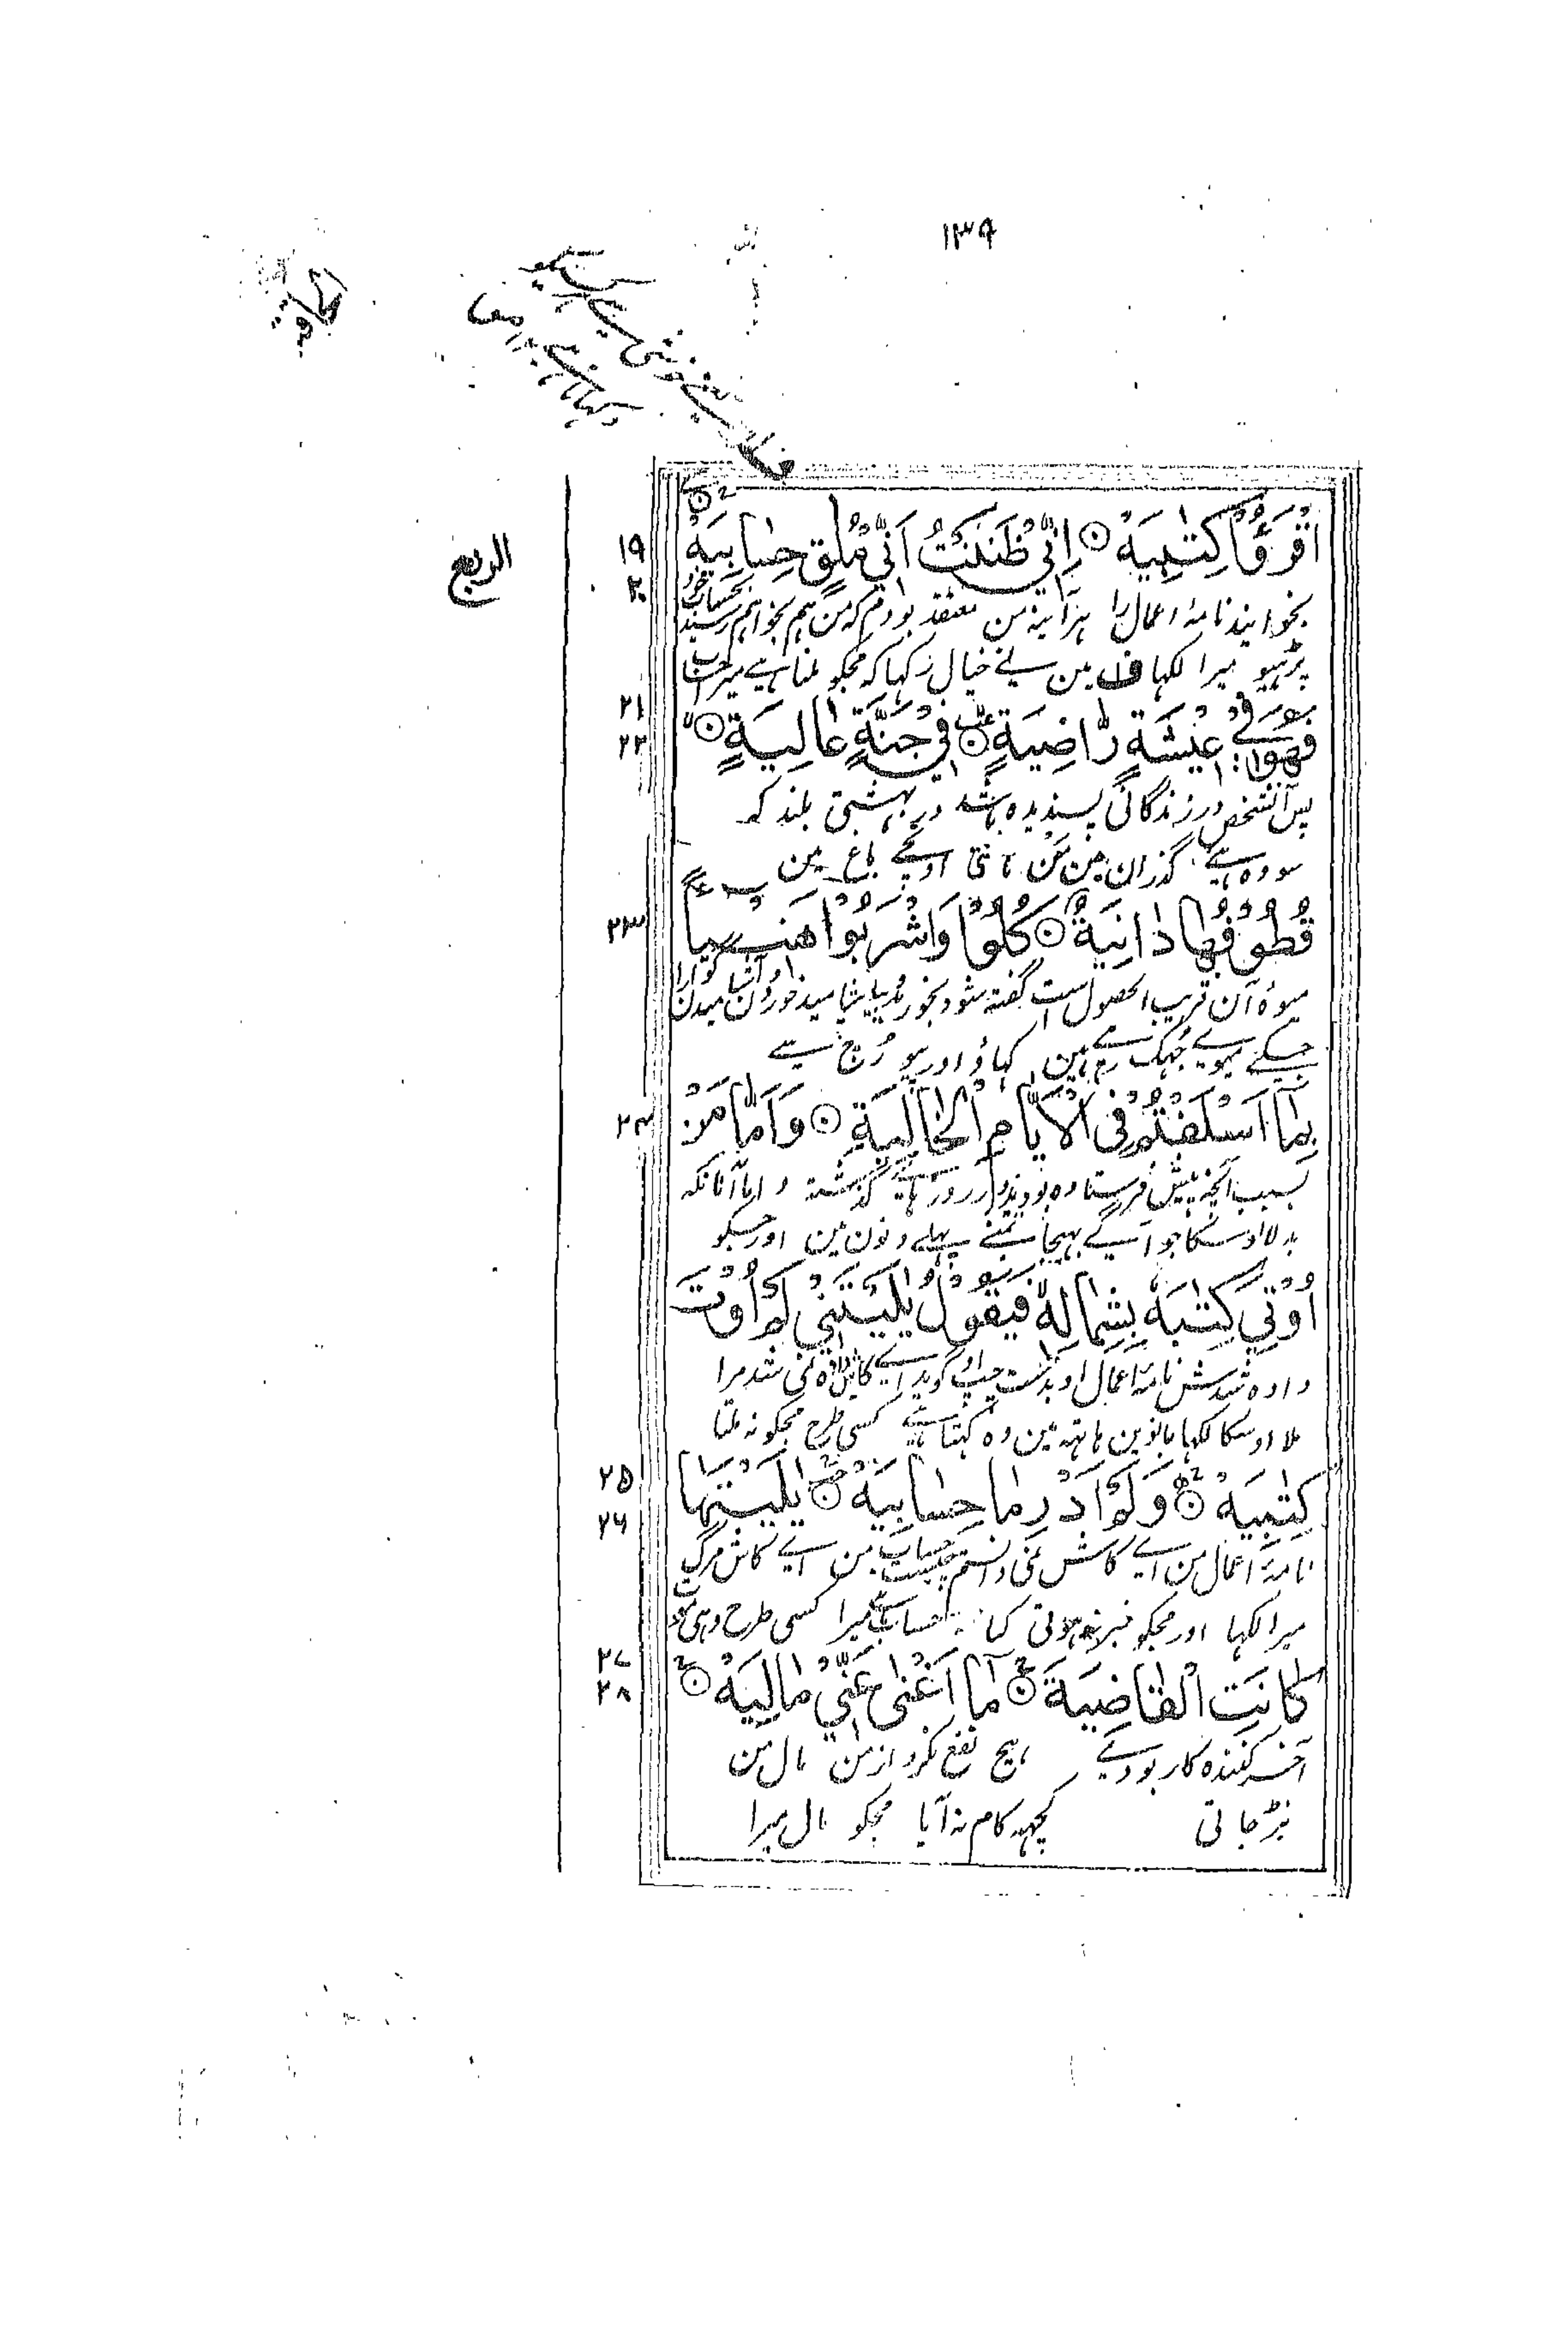 ١٣٩
الحاقة
ف یعنی خوشی سے
الربع
اقْرَءُوْا كِتٰبِيَهْ ۝ اِنِّيْ ظَنَنْتُ اَنِّيْ مُلٰقٍ حِسَابِيَهْ ۝
١٩
٢٠
بخوانید نامۀ اعمال را ہرآینہ من معتقد بودم کہ من ہم بخواہم رسید بحساب خود
پڑہیو میرا لکہا ف مین نے خیال رکہا کہ مجکو ملنا ہے میرا حساب
فَهُوَ فِيْ عِيْشَةٍ رَّاضِيَةٍ ۝ فِيْ جَنَّةٍ عَالِيَةٍ ۝
٢١
٢٢
پس آنشخص در زندگانی پسندیدہ باشد در بہشتی بلند کہ
سو وہ ہے گذران مین من مانتی اونچے باغ مین
قُطُوْفُهَا دَانِيَةٌ ۝ كُلُوْا وَاشْرَبُوْا هَنِيْٓـًٔا
٢٣
میوۂ آن قریب الحصول است گفتہ شود بخورید و بیاشامید خوردن و آشامیدن گوارا
جسکے میوے جُہک رہے ہین کہاؤ اور پیو رُچ سے
بِمَآ اَسْلَفْتُمْ فِى الْاَيَّامِ الْخَالِيَةِ ۝ وَاَمَّا مَنْ
٢٤
بسبب آنچہ پیش فرستادہ بودید در روزہائے گذشتہ و اما آنانکہ
بدلا اوسکا جو آگے بہیجا تمنے پہلے دنون مین اور جسکو
اُوْتِيَ كِتٰبَهٗ بِشِمَالِهٖ فَيَقُوْلُ يٰلَيْتَنِيْ لَمْ اُوْتَ
دادہ شدش نامۀ اعمال او بدست چپ او گوید اے کاش دادہ نمی شد مرا
ملا اوسکا لکہا بانوین ہاتہہ مین وہ کہتا ہے کسی طرح مجکو نہ ملتا
كِتٰبِيَهْ ۝ وَلَمْ اَدْرِ مَا حِسَابِيَهْ ۝ يٰلَيْتَهَا
٢٥
٢٦
نامۀ اعمال من اے کاش نمی دانستم چیست حساب من اے کاش مرگ
میرا لکہا اور مجکو خبر نہ ہوتی کیا ہے حساب میرا کسی طرح وہی موت
كَانَتِ الْقَاضِيَةَ ۝ مَآ اَغْنٰى عَنِّيْ مَالِيَهْ ۝
٢٧
٢٨
آخر کنندہ کار بودے ہیچ نفع نکرد از من مال من
نبڑ جاتی کچہہ کام نہ آیا مجکو مال میرا